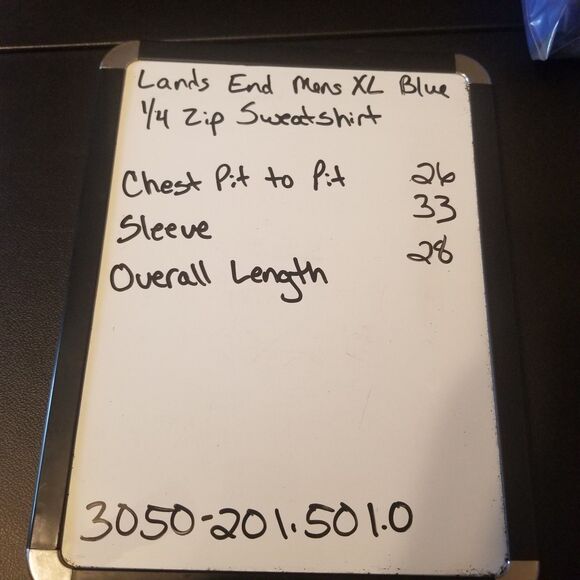 Lands End Mens XL Blue
1/4 Zip Sweatshirt
Chest Pit to Pit 26
Sleeve 33
Overall Length 28
3050-201.501.0